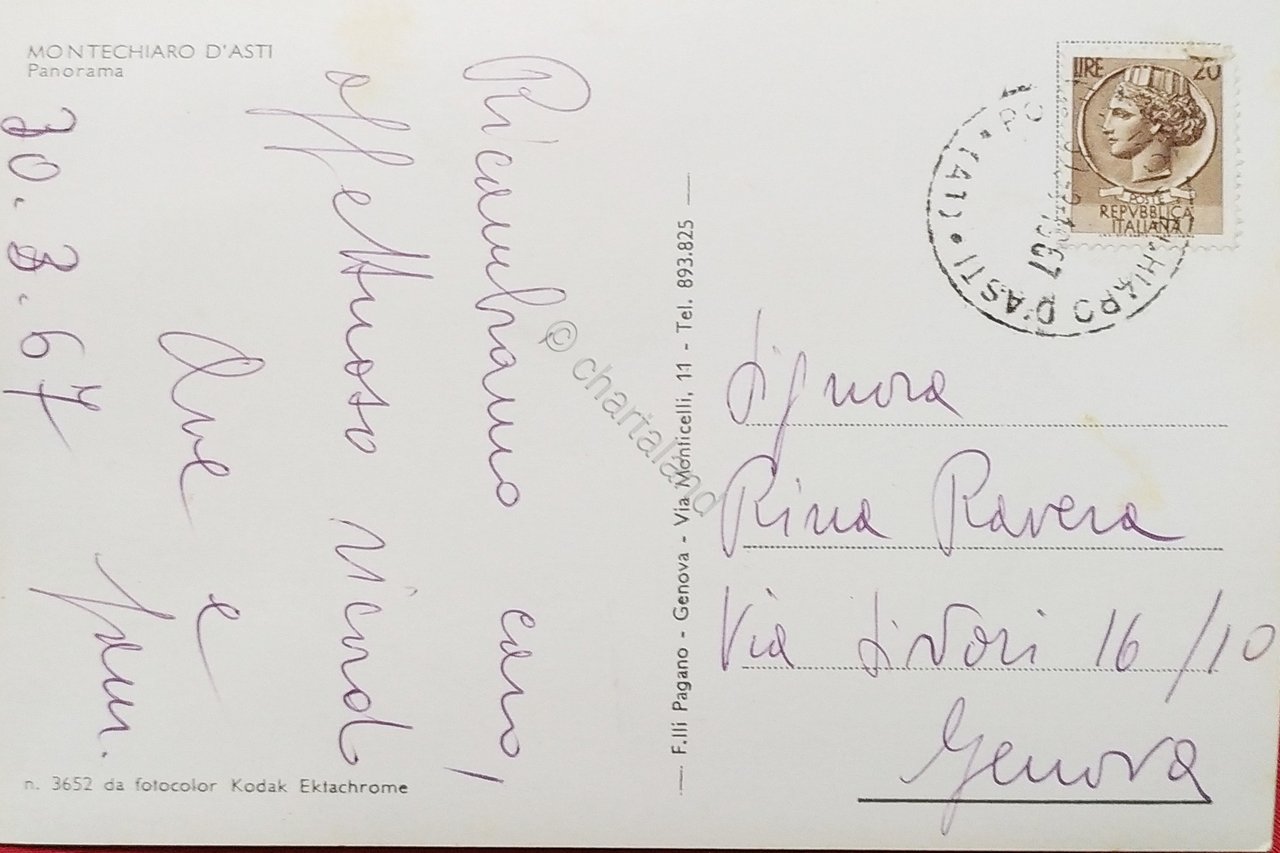 MONTECHIARO D'ASTI
Panorama
Ricambiamo caro,
affettuoso ricord
e
fam.
30.3.67
n. 3652 da fotocolor Kodak Ektachrome
F.lli Pagano - Genova - Via Monticelli, 11 - Tel. 893.825
© chartaland
LIRE 20
POSTE
REPVBBLICA
ITALIANA
CHIARO D'ASTI • (AT) •
1967
Signora
Rina Ravera
Via Sivori 16/10
Genova